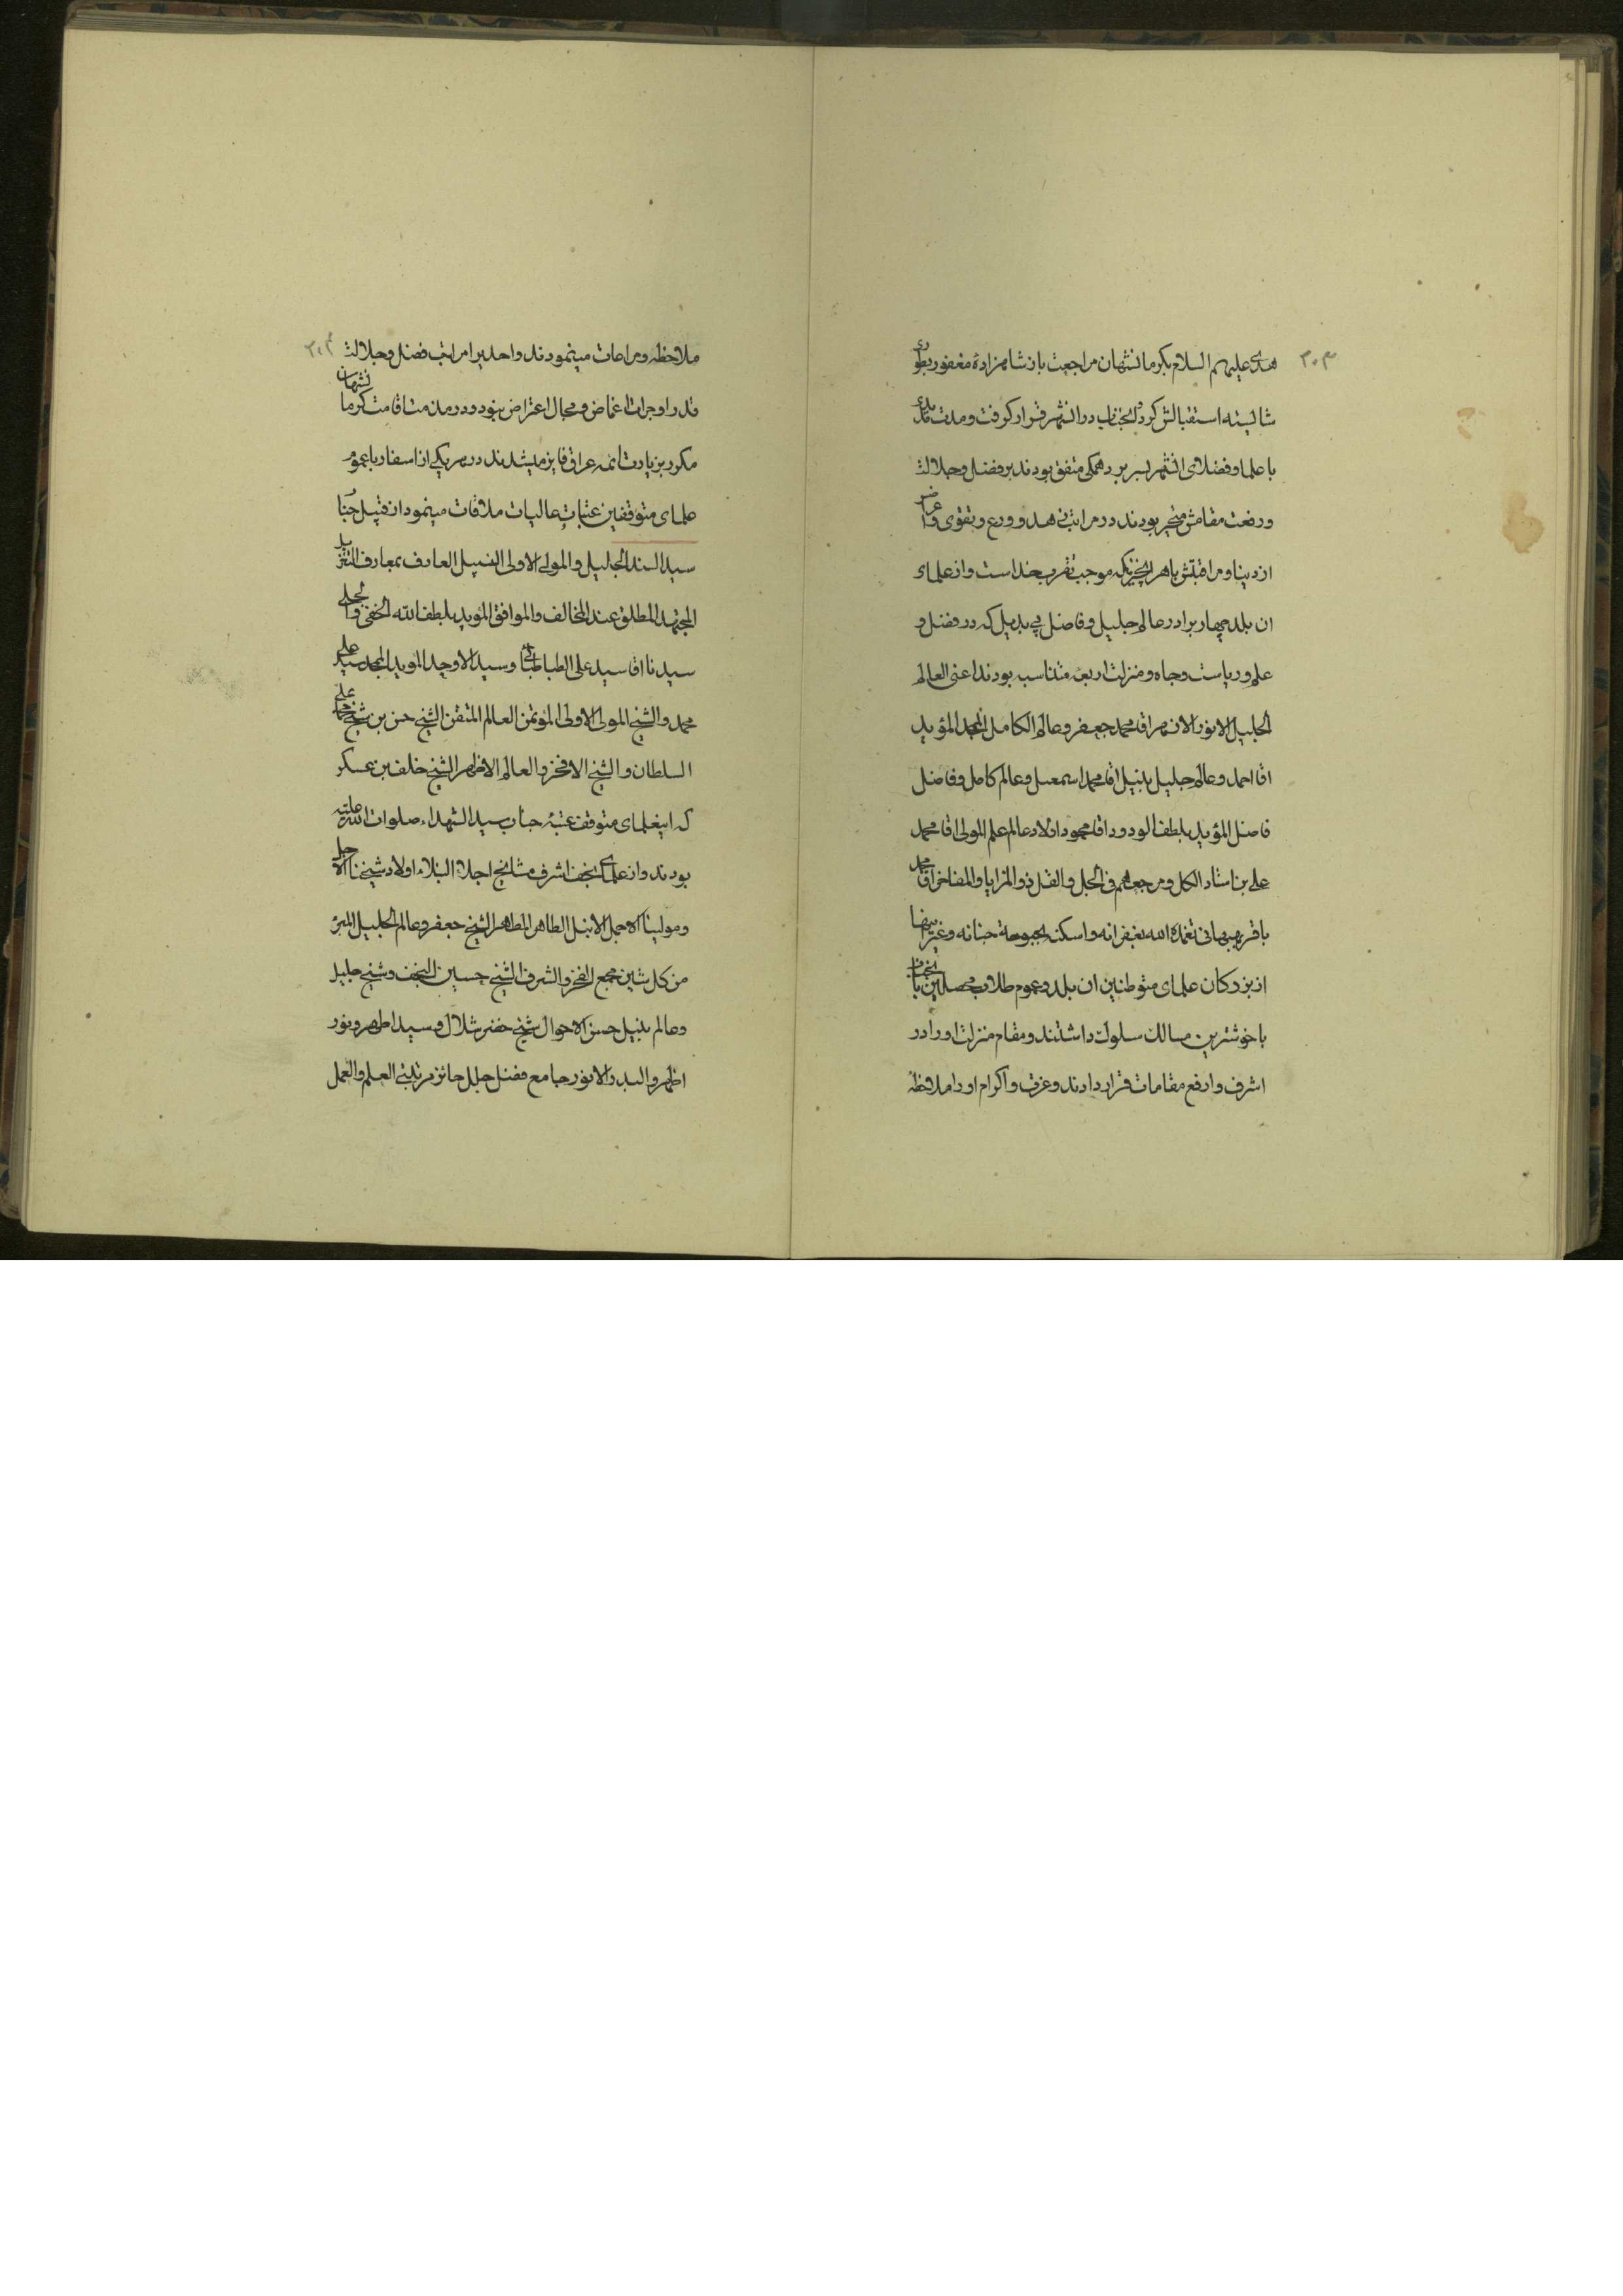 ۳۰۳
هدی علیهم السلام بکرمانشهان مراجعت باز شاهزادهٔ مغفور بطوری
شایسته استقبالش کرد و انجناب در انشهر قرار کرفت و مدت مدیدی
با علما و فضلای انشهر بسر برد همکی متفق بودند بر فضل و جلالت
و رفعت مقامش متحیر بودند در مراتب زهد و ورع و تقوی و اعراضش
از دنیا و مراقبتش باهر انچیزیکه موجب تقرب بخداست و از علمای
ان بلد چهار برادر عالم جلیل و فاضل بی بدیل که در فضل و
علم و ریاست و جاه و منزلت اربعه متناسبه بودند اعنی العالم
الجلیل الانور الازهر اقا محمد جعفر و عالم الکامل الممجد المؤید
اقا احمد و عالم جلیل نبیل اقا محمد اسمعیل و عالم کامل و فاضل
فاضل المؤید بلطف الودود اقا محمود اولاد عالم علم المولی اقا محمد
علی بن استاد الکل و مرجعهم فی الجل والقل ذو المزایا والمفاخر اقا محمد
باقر بهبهانی تغمده الله بغفرانه و اسکنه بحبوحة جنانه و غیر اینها
از بزرکان علمای متوطنین ان بلد و عموم طلاب محصلین با انجناب
باخوشترین مسالک سلوک داشتند و مقام منزلت او را در
اشرف و ارفع مقامات قرار دادند و عزت و اکرام او را ملاحظه
۳۰۴
ملاحظه و مراعات مینمودند و احدیرا مراتب فضل و جلالت
قدر او جرات اغماض و مجال اعتراض نبود و در مدت اقامت کرمانشهان
مکرر بزیارت ائمه عراق فایز میشدند در هر یکی از اسفار با عموم
علمای متوقفین عتبات عالیات ملاقات مینمود از قبیل جناب
سید السند الجلیل والمولی الاولی النبیل العارف بمعارف التنزیل
المجتهد المطلق عند المخالف والموافق المؤید بلطف الله الخفی والجلی
سیدنا اقا سید علی الطباطبائی و سید الاوحد الموید الممجد سید علی
محمد و الشیخ المولی الاولی المؤتمن العالم المتقن الشیخ حسن بن شیخ محمد علی
السلطان و الشیخ الافخر والعالم الاظهر الشیخ خلف بن عسکر
که اینعلمای متوقف عتبهٔ جناب سید الشهداء صلوات الله علیه
بودند و از علمای نجف اشرف مشایخ اجلاء النبلاء اولاد شیخنا الاجل
و مولینا الاجمل الانبل الطاهر المطهر الشیخ جعفر و عالم الجلیل المبرء
من کل شین مجمع الفخر و الشرف الشیخ حسین النجف و شیخ جلیل
و عالم نبیل حسن الاحوال شیخ خضر شلال و سید اطهر و نور
اظهر والبدر الانور جامع فضل جلل حائز مرتبتی العلم والعمل